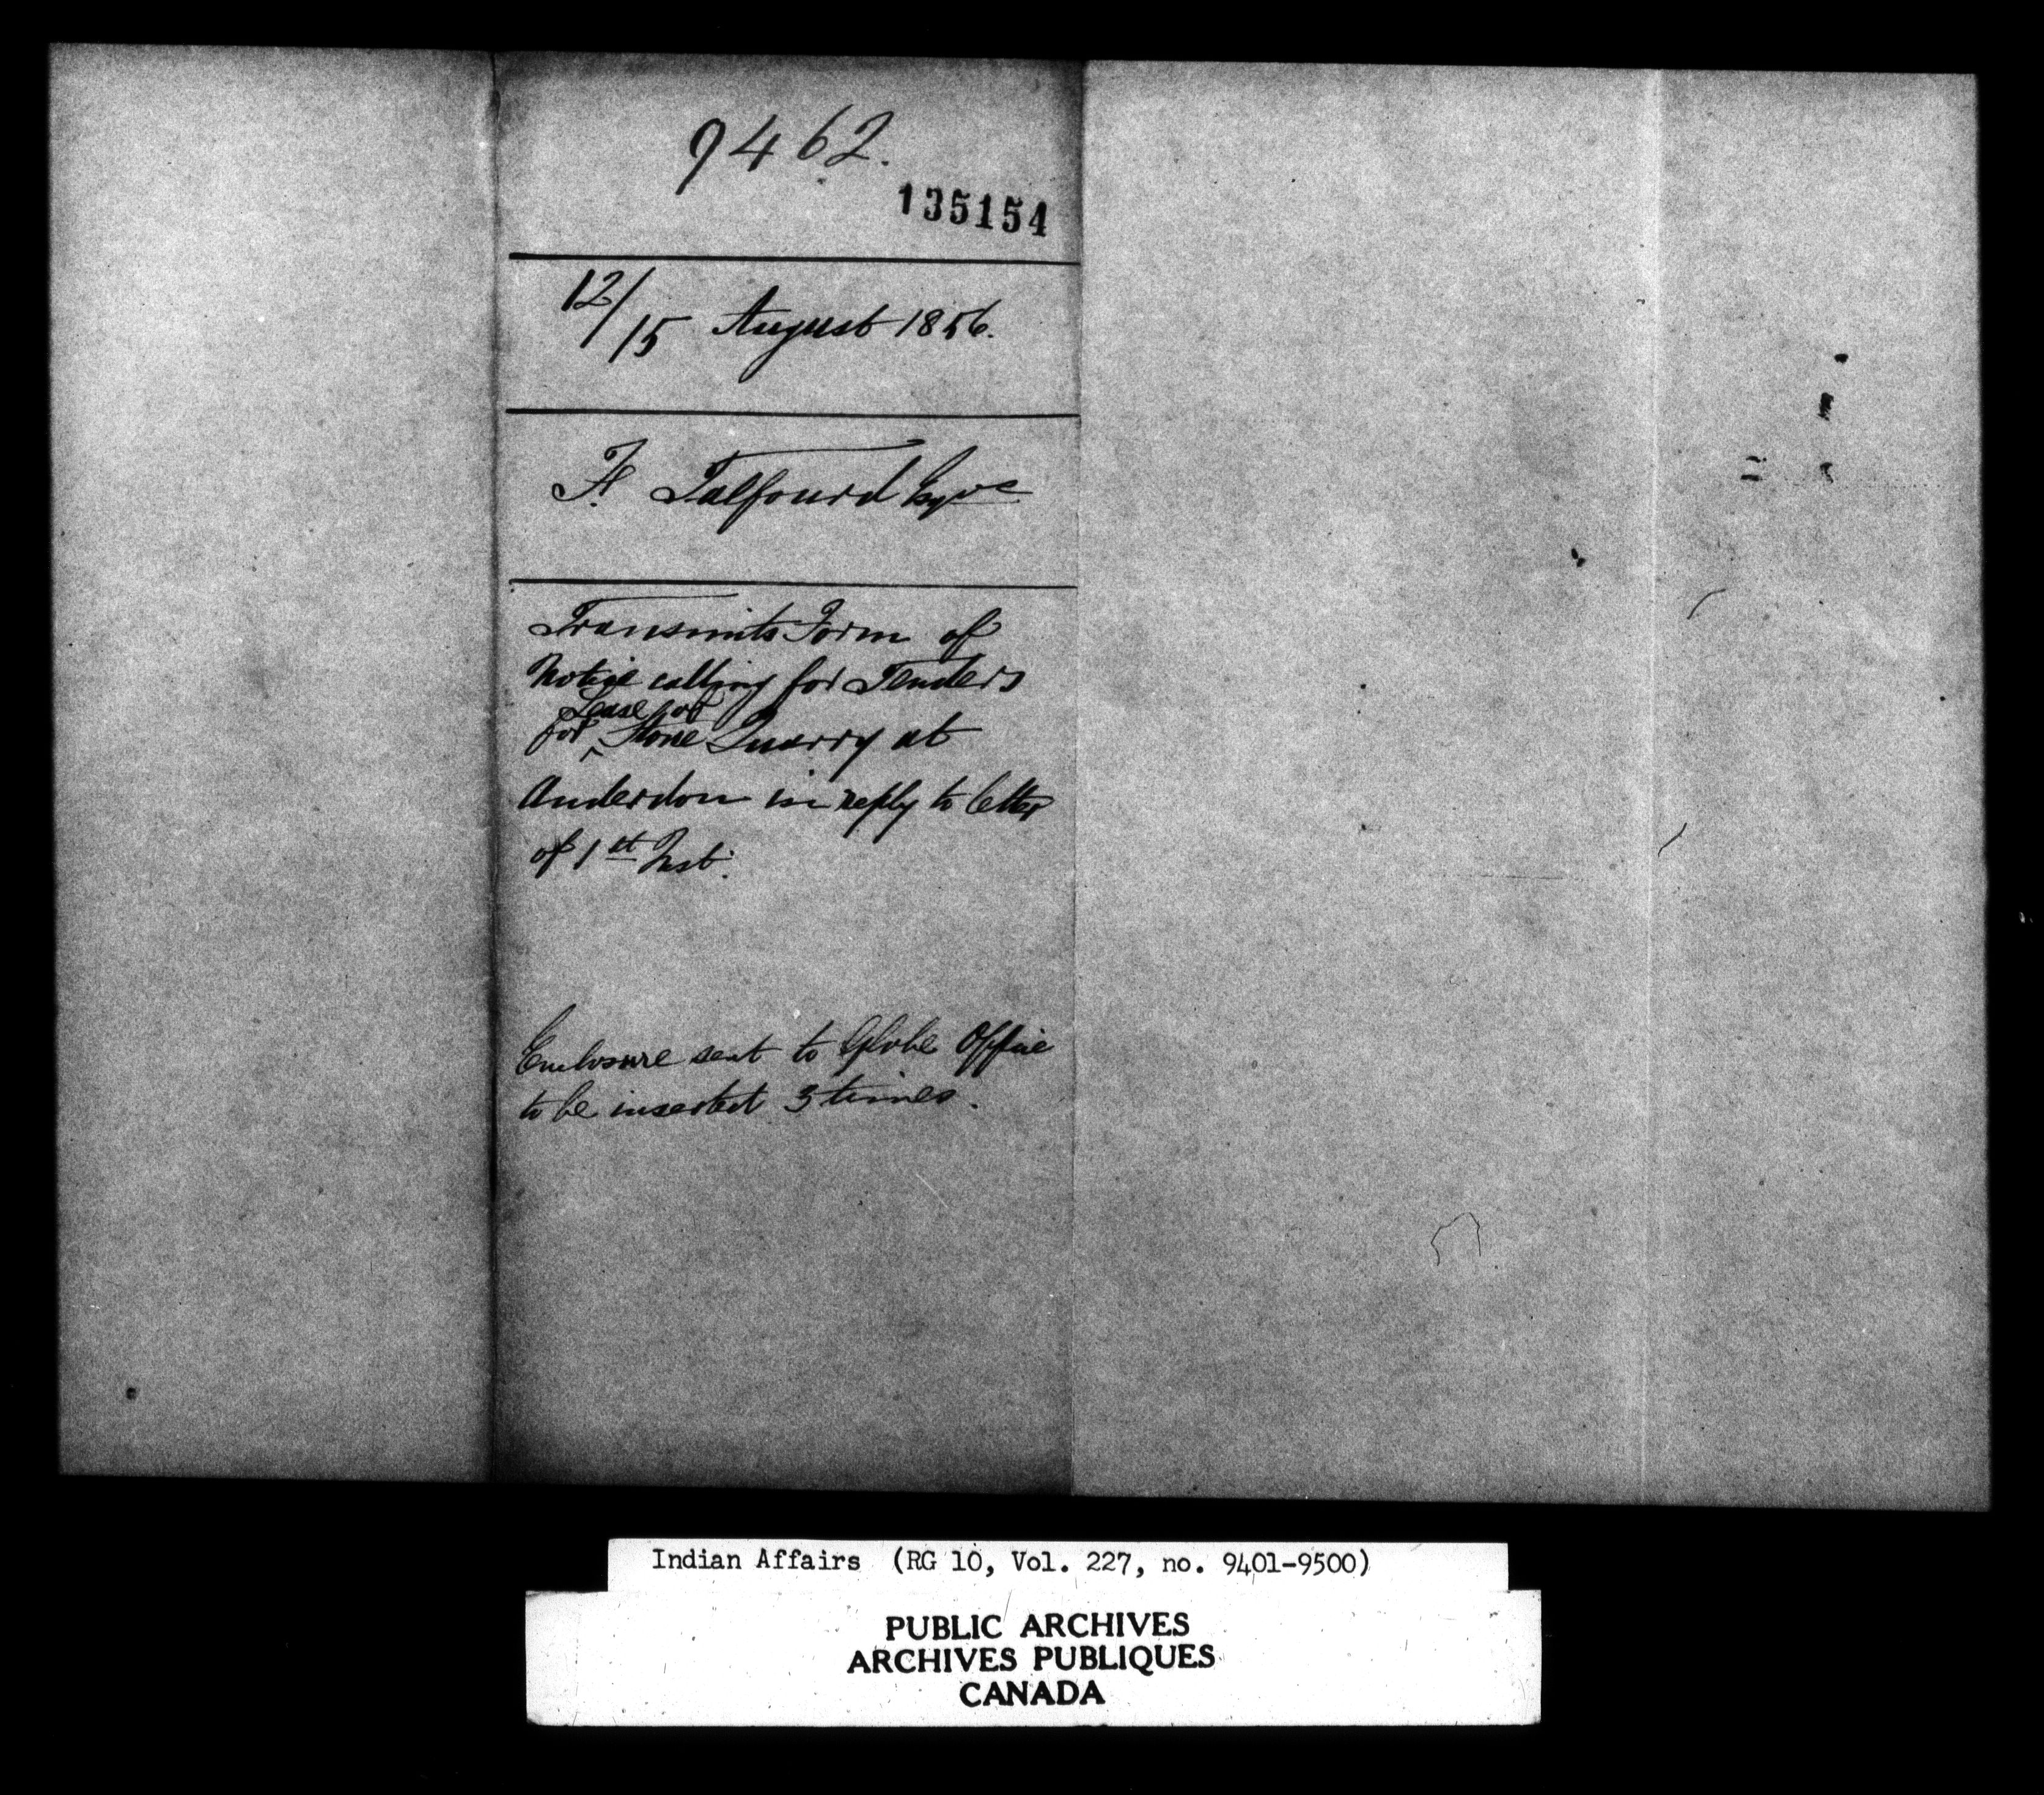 9462.
135154
12/15 August 1856.
F. Talfourd Esqre
Transmits Form of
Notice calling for Tenders
Lease of
for ^ Stone Quarry at
Anderdon in reply to letter
of 1st Inst.
Enclosure sent to Globe Office
to be inserted 3 times.
Indian Affairs (RG 10, Vol. 227, no. 9401-9500)
PUBLIC ARCHIVES
ARCHIVES PUBLIQUES
CANADA